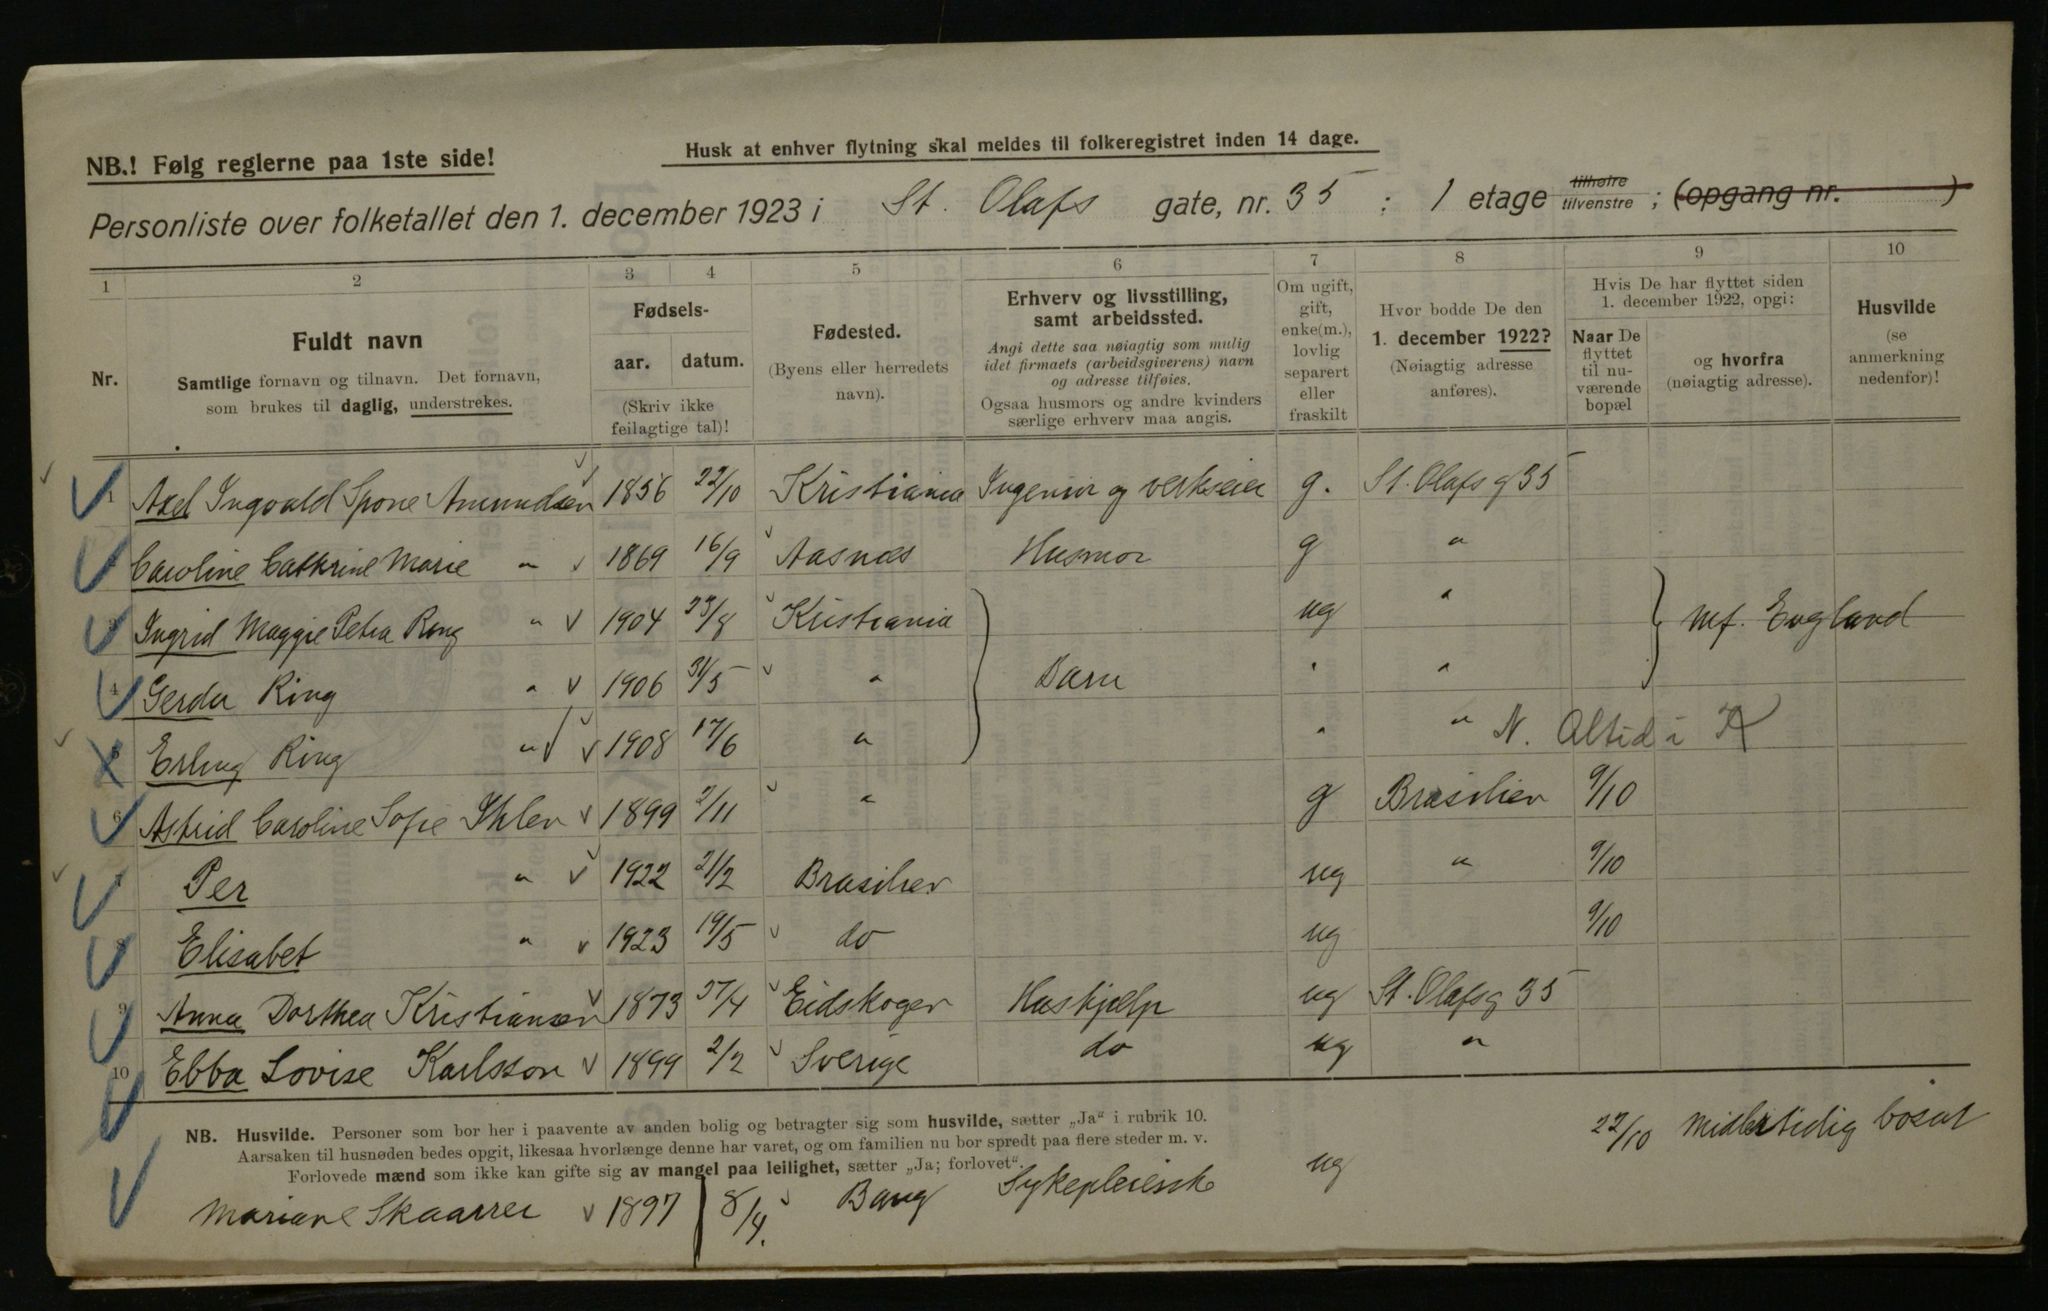 NB.! Følg reglerne paa 1ste side!
Husk at enhver flytning skal meldes til folkeregistret inden 14 dage.
Personliste over folketallet den 1. december 1923 i St. Olafs gate, nr. 35 ; 1 etage tilhøire tilvenstre ; (opgang nr. )
1 2 3 4 5 6 7 8 9 10
Nr.
Fuldt navn
Samtlige fornavn og tilnavn. Det fornavn,
som brukes til daglig, understrekes.
Fødsels-
aar. datum.
(Skriv ikke
feilagtige tal)!
Fødested.
(Byens eller herredets
navn).
Erhverv og livsstilling,
samt arbeidssted.
Angi dette saa nøiagtig som mulig
idet firmaets (arbeidsgiverens) navn
og adresse tilføies.
Ogsaa husmors og andre kvinders
særlige erhverv maa angis.
Om ugift,
gift,
enke(m.),
lovlig
separert
eller
fraskilt
Hvor bodde De den
1. december 1922?
(Nøiagtig adresse
anføres).
Hvis De har flyttet siden
1. december 1922, opgi:
Naar De
flyttet
til nu-
værende
bopæl
og hvorfra
(nøiagtig adresse).
Husvilde
(se
anmerkning
nedenfor)!
1 Axel Ingvald Spone Amundsen 1856 22/10 Kristiania Ingeniør og verkseier g. St. Olafs g 35
Caroline Cathrine Marie " 1869 16/9 Aasnæs Husmor g "
3 Ingrid Maggie Petra Ring " 1904 23/8 Kristiania ug " Mf. England
4 Gerda Ring " 1906 31/5 " Barn " "
5 Erling Ring " 1908 17/6 " " " N. Altid i K
6 Astrid Caroline Sofie Ihlen 1899 2/11 " g Brasilien 9/10
7 Per " 1922 21/2 Brasilien ug " 9/10
8 Elisabet " 1923 19/5 do ug 9/10
9 Anna Dorthea Kristiansen 1873 27/4 Eidskogen Hushjælp ug St. Olafsg 35
10 Ebba Lovise Karlsson 1899 2/2 Sverige do ug "
NB. Husvilde. Personer som bor her i paavente av anden bolig og betragter sig som husvilde, sætter „Ja“ i rubrik 10.
Aarsaken til husnøden bedes opgit, likesaa hvorlænge denne har varet, og om familien nu bor spredt paa flere steder m. v.
Forlovede mænd som ikke kan gifte sig av mangel paa leilighet, sætter „Ja; forlovet“.
22/10 Midlertidig bosat
Mariane Skaarrer 1897 8/4. Bang Sykepleiersk ug